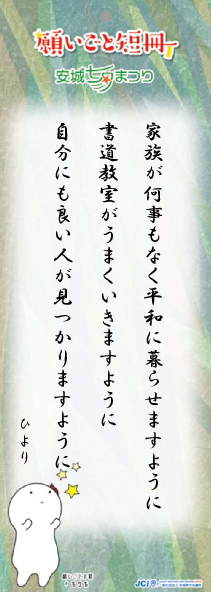 願いごと短冊
安城七夕まつり
家族が何事もなく平和に暮らせますように
書道教室がうまくいきますように
自分にも良い人が見つかりますように
ひより
JCI